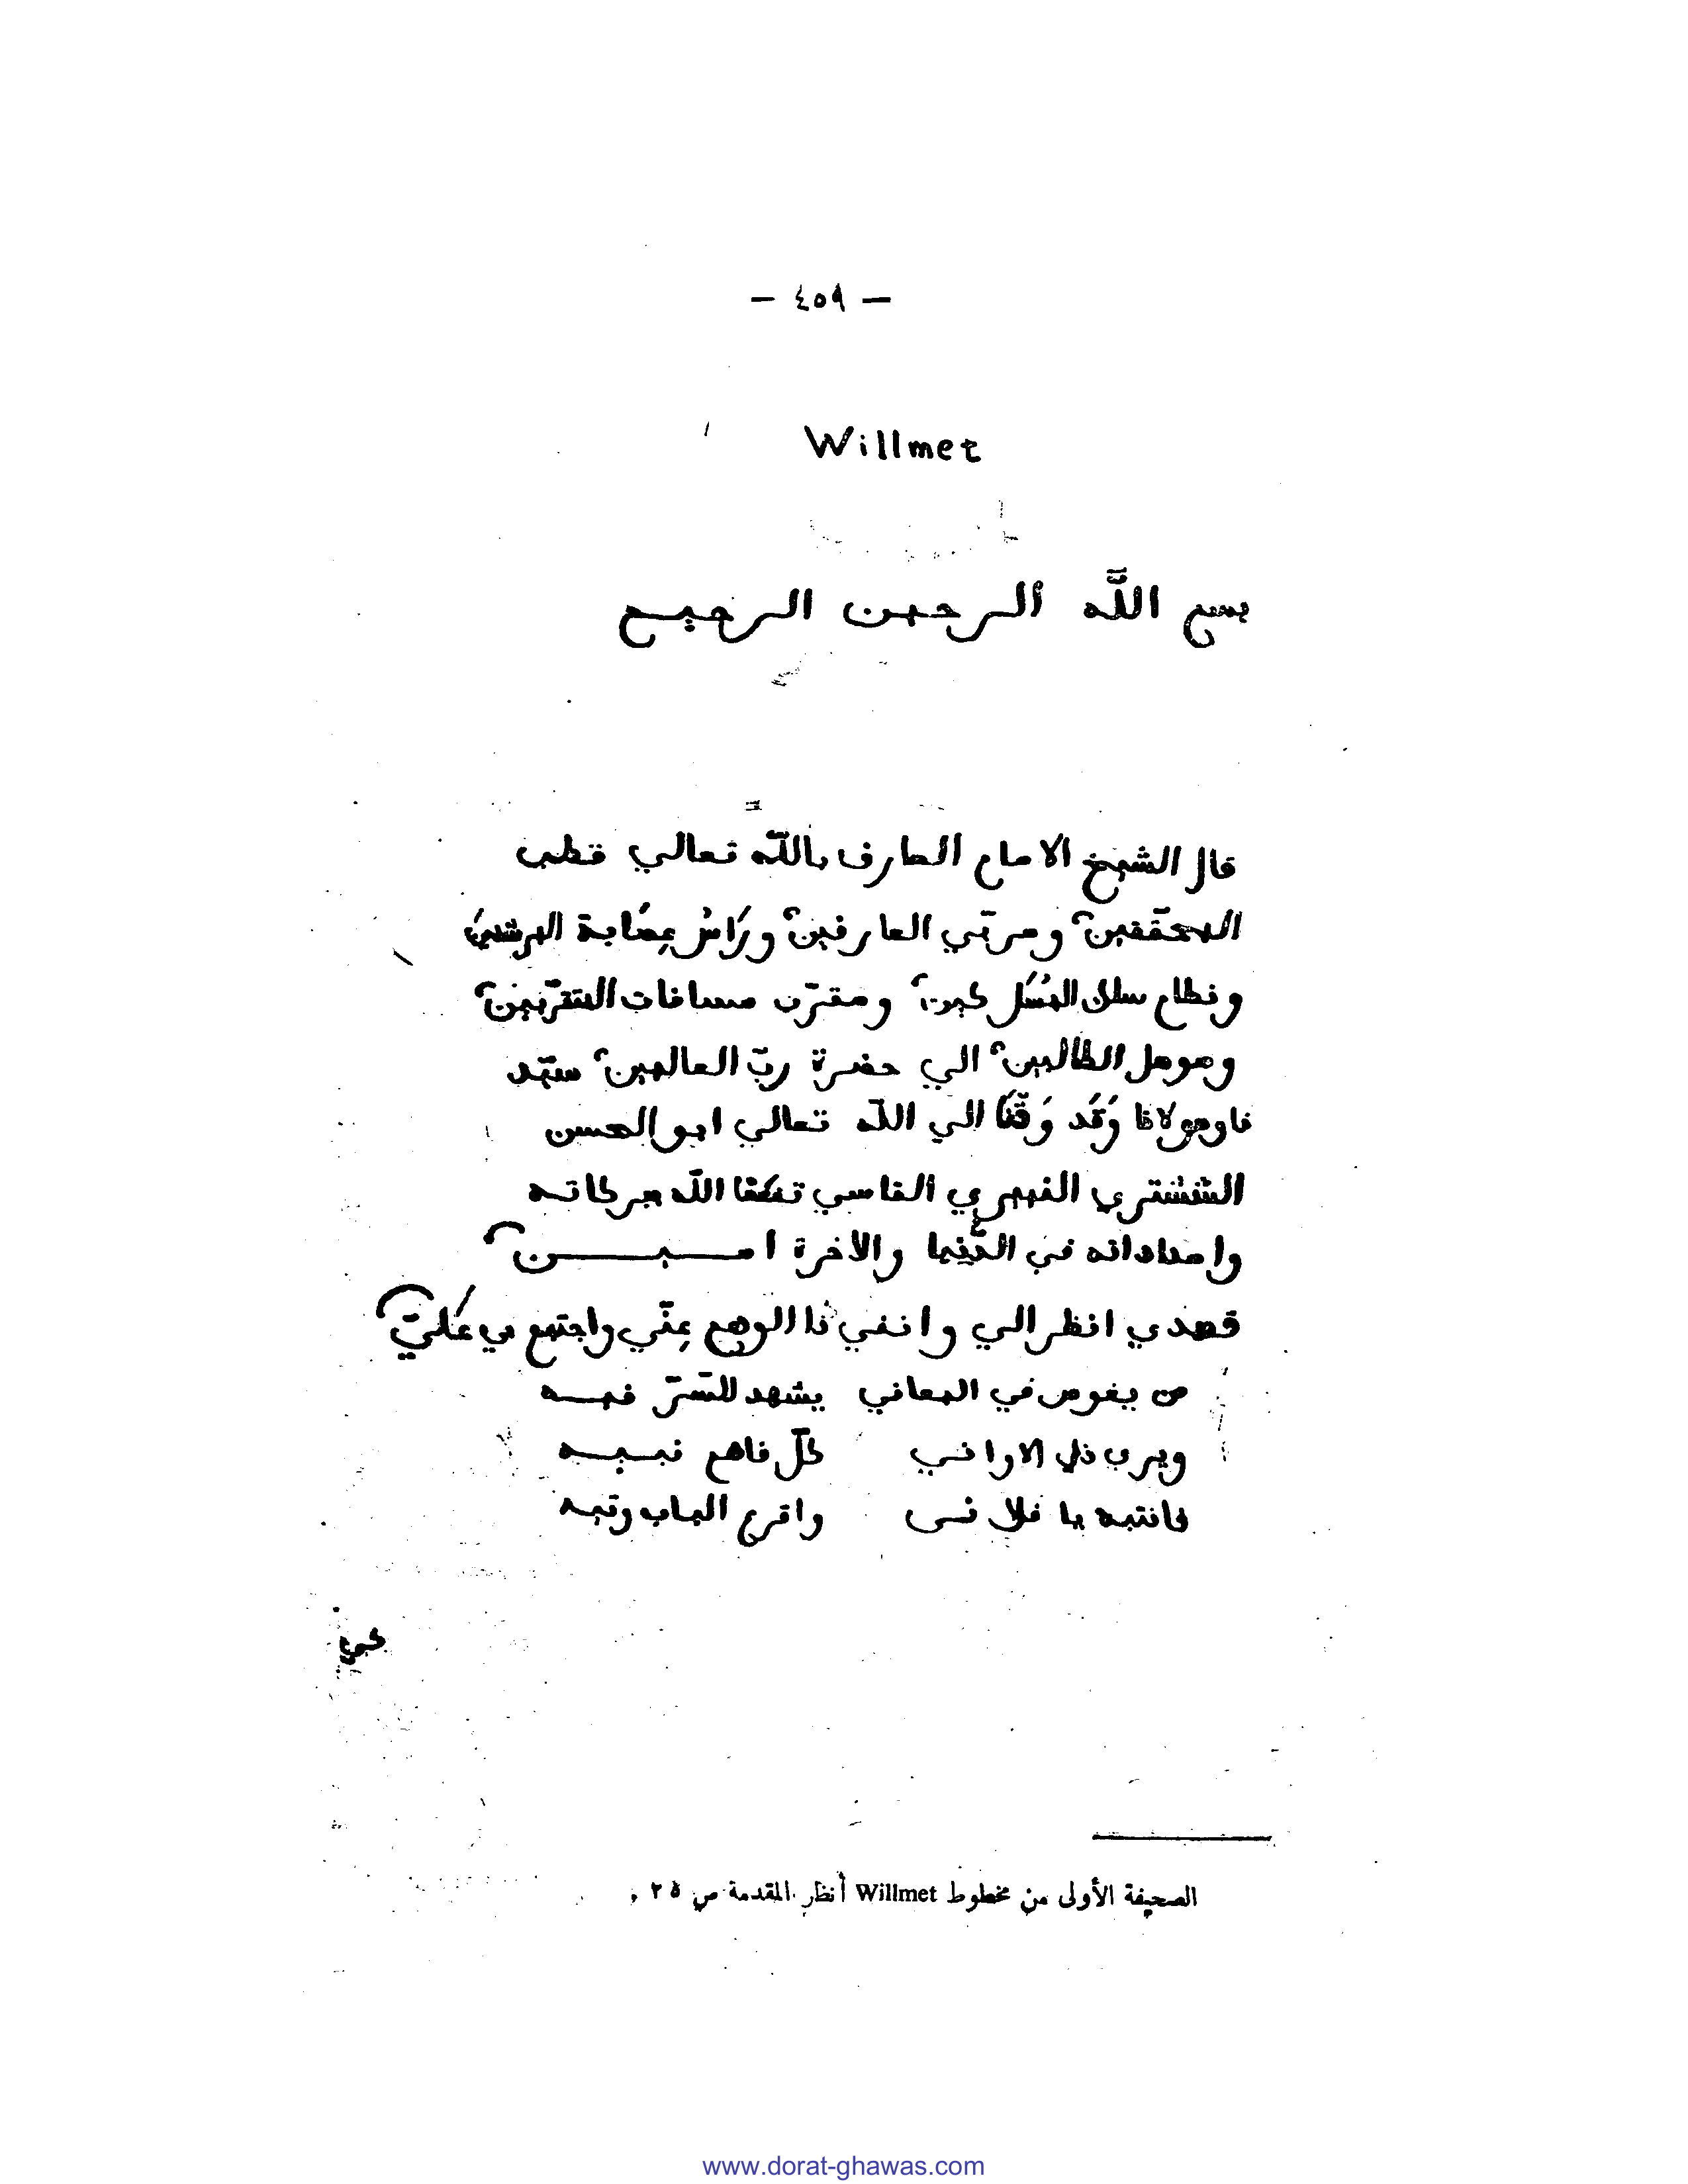 — ٤٥٩ —
Willmet
بسم اللّه الرحمن الرحيم
قال الشيخ الامام العارف باللّه تعالي قطب
المحقّقين ومربّي العارفين ورَاسُ عِصَابة المرشدين
ونظام سلك المُسَلكين ومقرّب مسافات المتقرّبين
وموصل الطالبين الي حضرة ربّ العالمين سيّد
ناومولانا وَقَد وَتَّنَا الي اللّه تعالي ابو الحسن
الششتري الفهري الفاسي نفعَنا اللّه ببركاته
وامداداته في الدّنيا والاخرة امـيـن
قصدي انظر الي وانفي ذا الوهم عِنّي واجتمع بي عَليّ
من يغوص في المعاني يشهد للسّرّ فيـه
ويري ذلي الاوانـي كلّ فاهم نبـيـه
فانتبه يا فلانـي واقرع الباب وتيه
كي
الصحيفة الأولى من مخطوط Willmet أنظر المقدمة ص ٢٥ .
www.dorat-ghawas.com